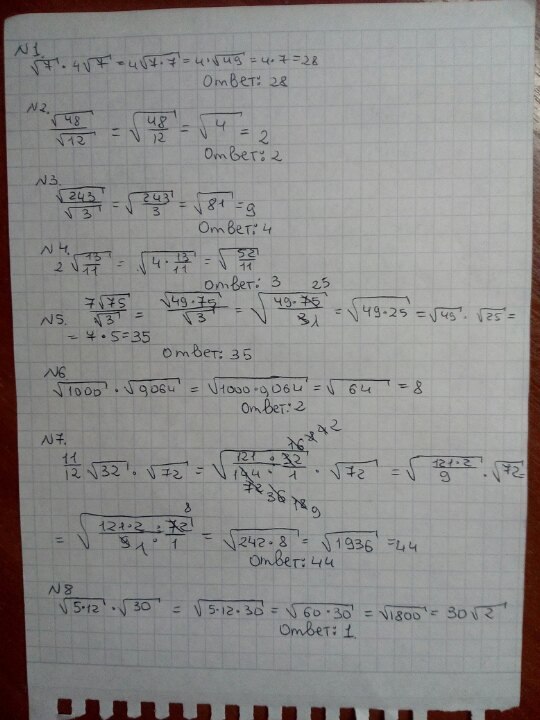 №1.
√7 · 4√7 = 4√7·7 = 4·√49 = 4·7 = 28
Ответ: 28
№2.
√48/√12 = √48/12 = √4 = 2
Ответ: 2
№3.
√243/√3 = √243/3 = √81 = 9
Ответ: 4
№4.
2√13/11 = √4·13/11 = √52/11
Ответ: 3
№5. 7√75/√3 = √49·75/√3 = √49·75/3 25 1 = √49·25 = √49 · √25 =
= 7·5 = 35
Ответ: 35
№6
√1000 · √0,064 = √1000·0,064 = √64 = 8
Ответ: 2
№7
11/12 √32 · √72 = √121·32/144·1 · √72 = √121·2/9 · √72 =
= √121·2·72/9·1 8 1 = √242·8 = √1936 = 44
Ответ: 44
№8
√5·12 · √30 = √5·12·30 = √60·30 = √1800 = 30√2
Ответ: 1.